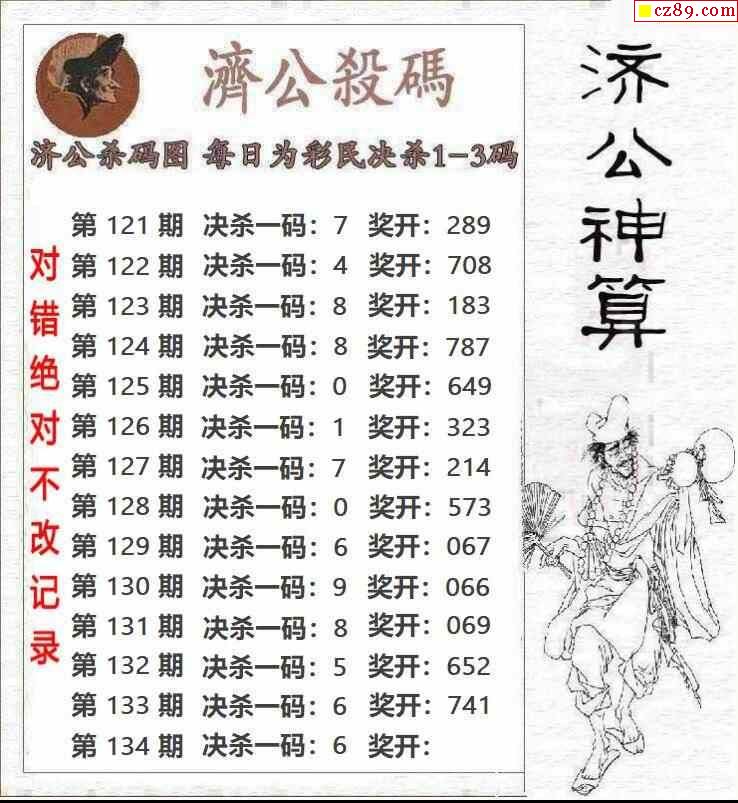 cz89.com
濟公殺碼
济公杀码图 每日为彩民决杀1-3码
第 121 期 决杀一码：7 奖开：289
第 122 期 决杀一码：4 奖开：708
第 123 期 决杀一码：8 奖开：183
第 124 期 决杀一码：8 奖开：787
第 125 期 决杀一码：0 奖开：649
第 126 期 决杀一码：1 奖开：323
第 127 期 决杀一码：7 奖开：214
第 128 期 决杀一码：0 奖开：573
第 129 期 决杀一码：6 奖开：067
第 130 期 决杀一码：9 奖开：066
第 131 期 决杀一码：8 奖开：069
第 132 期 决杀一码：5 奖开：652
第 133 期 决杀一码：6 奖开：741
第 134 期 决杀一码：6 奖开：
对错绝对不改记录
济公神算